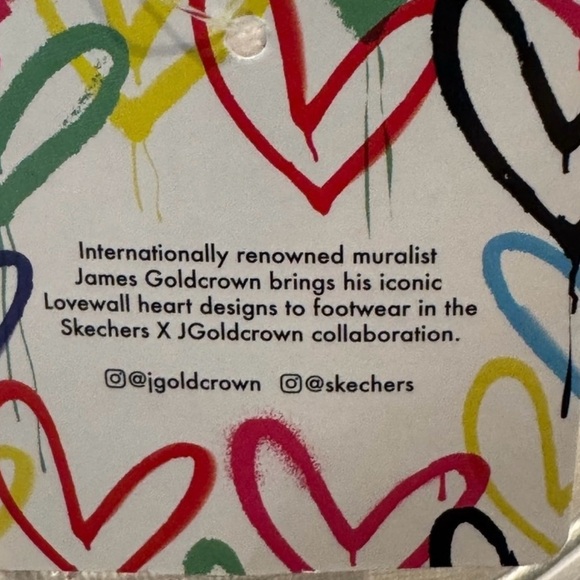 Internationally renowned muralist
James Goldcrown brings his iconic
Lovewall heart designs to footwear in the
Skechers X JGoldcrown collaboration.
@jgoldcrown @skechers